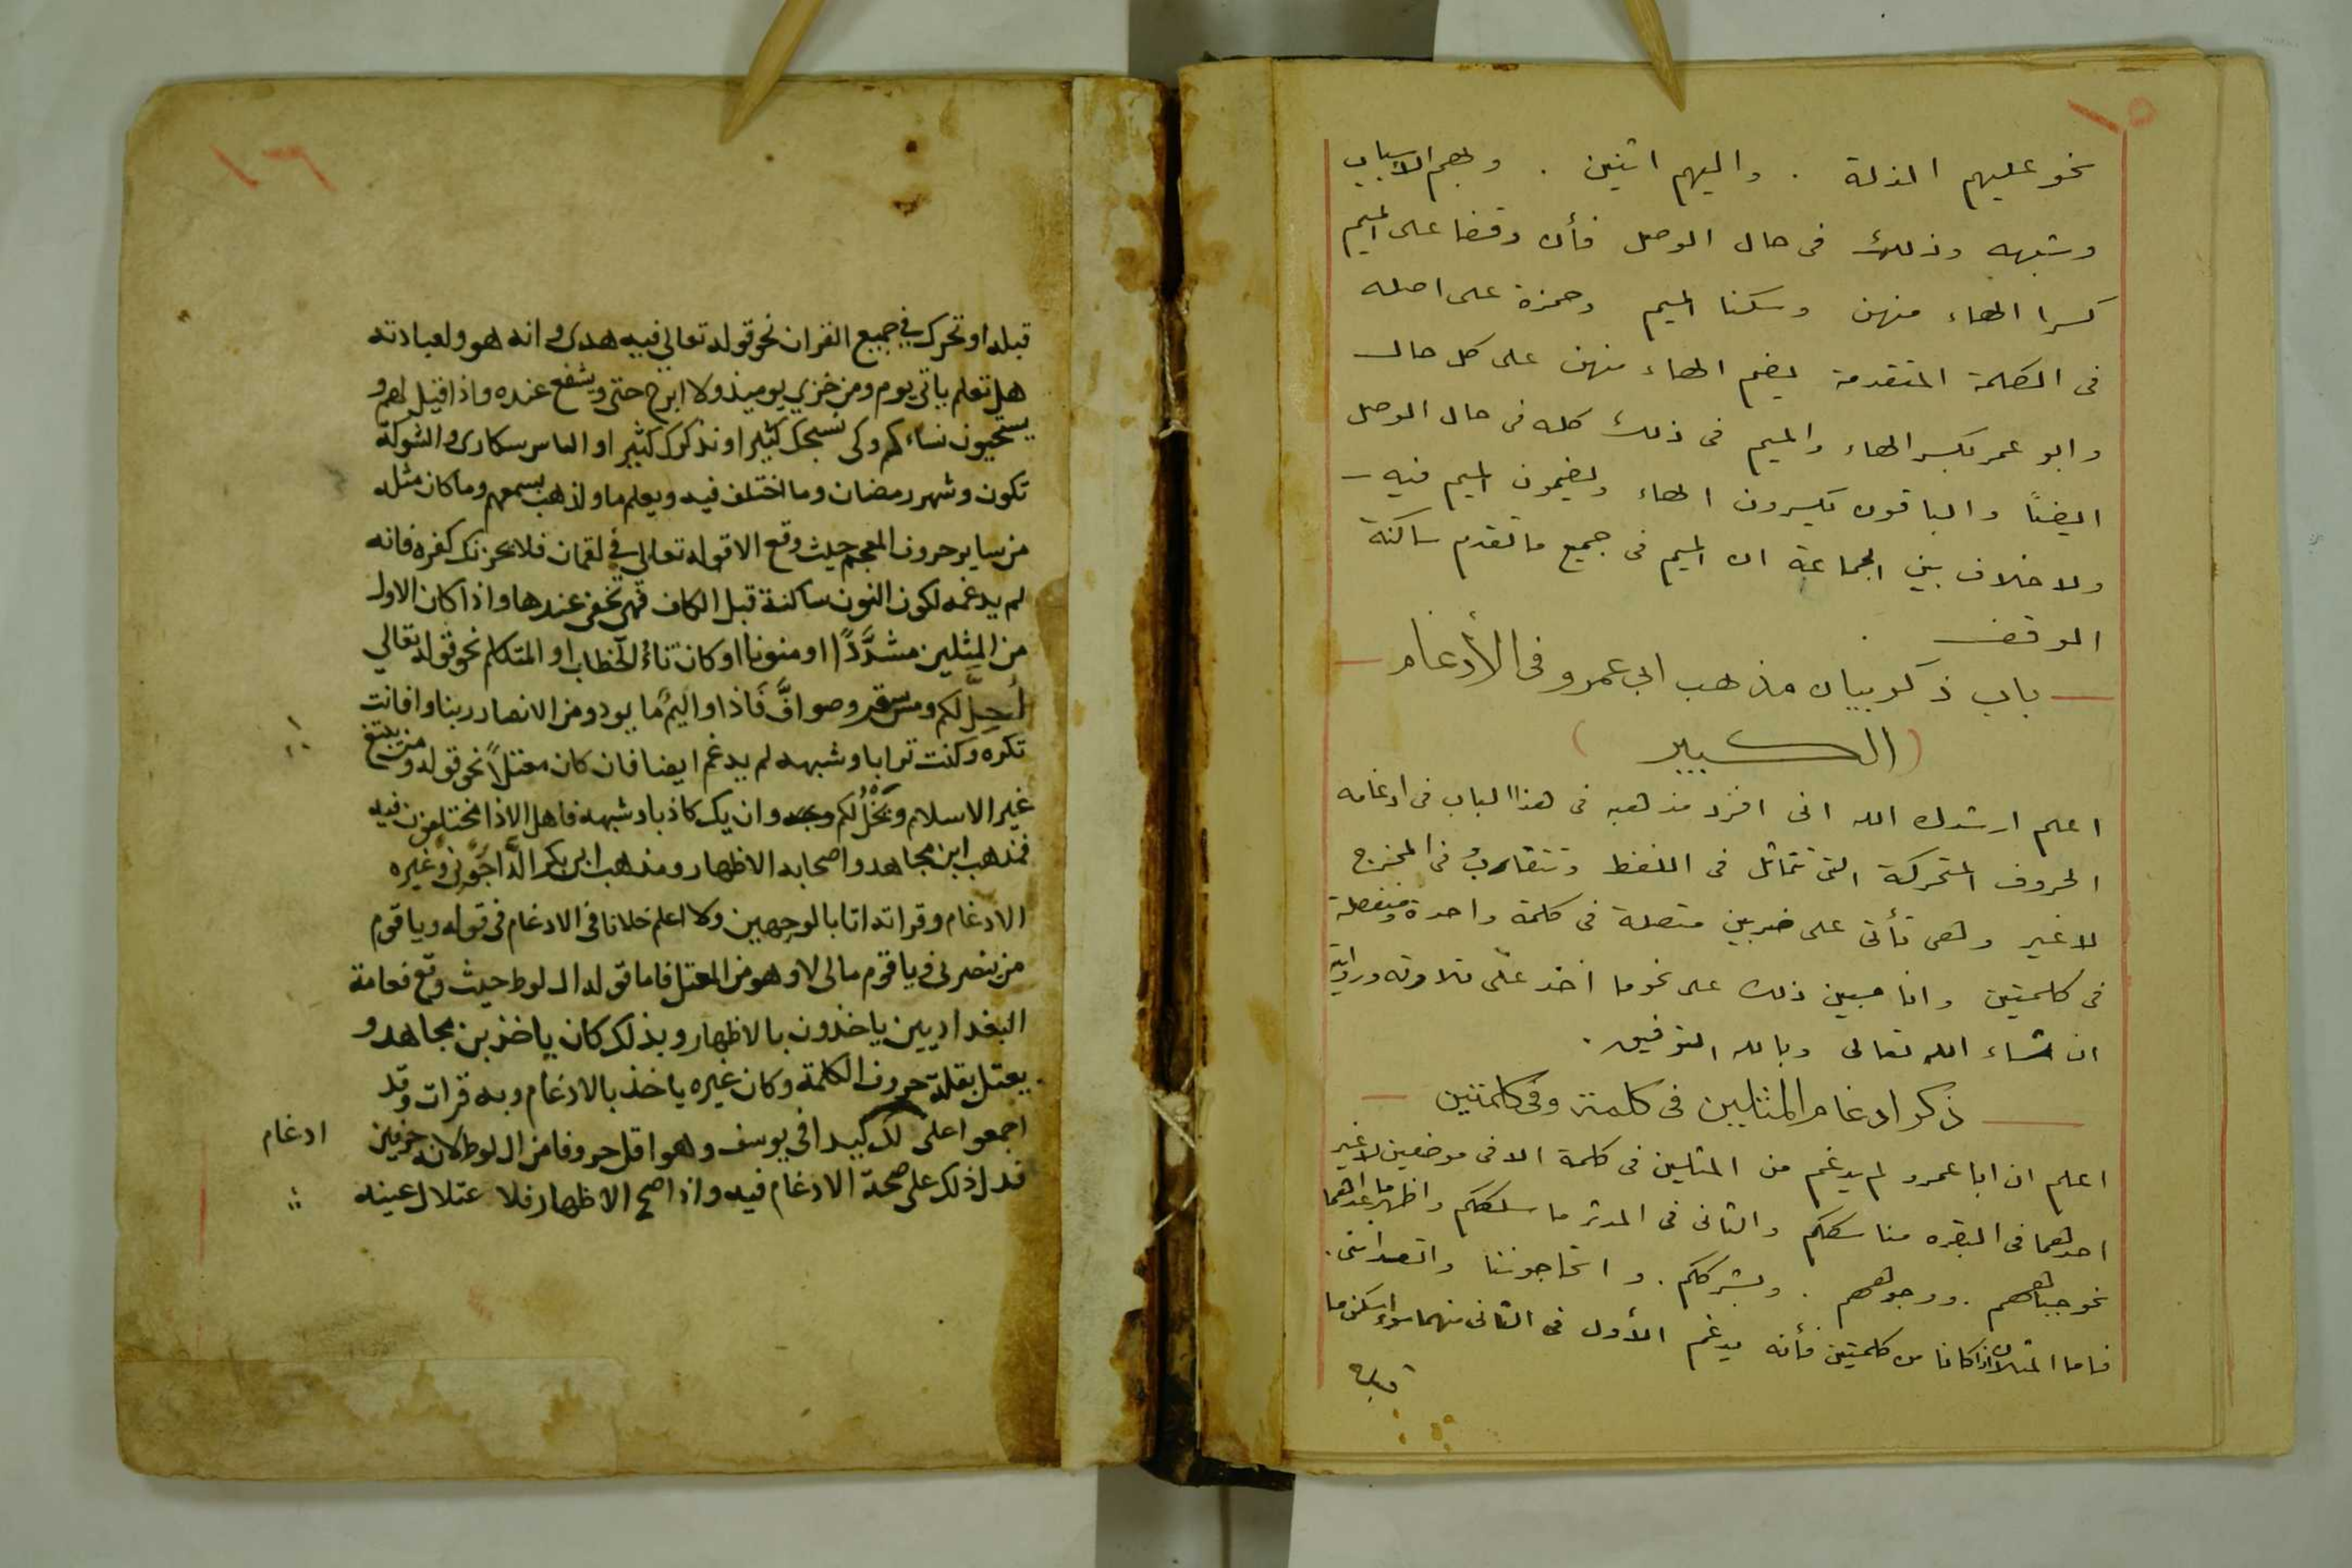 ١٥
نحو عليهم الذلة . واليهم اثنين . وبهم الاسباب
وشبهه وذلك فى حال الوصل فأن وقفا على الميم
كسرا الهاء منهن وسكنا الميم وحمزة على اصله
فى الكلمة المتقدمة يضم الهاء منهن على كل حال
وابو عمر بكسر الهاء والميم فى ذلك كله فى حال الوصل
ايضًا والباقون يكسرون الهاء ويضمون الميم فيه
ولا خلاف بين الجماعة ان الميم فى جميع ما تقدم ساكنة
الوقف
باب ذكر بيان مذهب ابى عمرو فى الأدغام
(الكبير)
اعلم ارشدك الله انى افرد مذهبه فى هذا الباب فى ادغامه
الحروف المتحركة التى تتماثل فى اللفظ وتتقارب فى المخرج
لا غير وهى تأتى على ضربين متصلة فى كلمة واحدة ومنفصلة
فى كلمتين وانا مبين ذلك على نحو ما اخذ علىّ تلاوته ورواية
ان شاء الله تعالى وبالله التوفيق .
ذكر ادغام المثلين فى كلمة وفى كلمتين
اعلم ان ابا عمرو لم يدغم من المثلين فى كلمة الا فى موضعين لا غير
احدهما فى البقره مناسككم والثانى فى المدثر ما سلككم واظهر ما عداهما
نحو جباههم . ووجوههم . وبشرككم . و اتحاجوننا واتعداننى .
فاما المثلان اذا كانا من كلمتين فأنه يدغم الأول فى الثانى منهما سواء سكن ما
قبله
١٦
قبله او تحرك في جميع القران نحو قوله تعالي فيه هدى وانه هو ولعبادته
هل تعلم ياتي يوم ومن خزي يوميذ ولا ابرح حتى ويشفع عنده واذا قيل لهم و
يستحيون نساءكم وكى نسبحك كثيرا ونذكرك كثيرا والناس سكارى والشوكة
تكون وشهر رمضان وما اختلف فيه ويعلم ما ولذهب بسمعهم وما كان مثله
من ساير حروف المعجم حيث وقع الا قوله تعالى في لقمان فلا يحزنك كفره فانه
لم يدغمه لكون النون ساكنة قبل الكاف فهى تخفى عندها واذا كان الاول
من المثلين مشدَّدًا او منونا او كان تاءُ الخطاب او المتكلم نحو قوله تعالي
اُحِلَّ لكم ومس سقر وصوافَّ فَاذا واليَمِّ ما يود ومن الانصار ربنا وافانت
تكره وكنت ترابا وشبهه لم يدغم ايضا فان كان معتلاً نحو قوله ومن يبتغ
غير الاسلام ويَخْلُ لكم وجه وان يك كاذبا وشبهه فاهل الاذا مختلفون فيه
فمذهب ابن مجاهد واصحابه الاظهار ومذهب ابى بكر الدَّاجُونى وغيره
الادغام وقراته انا بالوجهين ولا اعلم خلافا فى الادغام فى قوله ويا قوم
من ينصرنى ويا قوم مالى لا وهو من المعتل فاما قوله ال لوط حيث وقع فعامة
البغداديين ياخذون بالاظهار وبذلك كان ياخذ بن مجاهد و
يعتل بقلة حروف الكلمة وكان غيره ياخذ بالادغام وبه قرات وقد
اجمعوا على لك كيدا فى يوسف وهو اقل حروفا من ال لوط لانه حرفين
ادغام
فدل ذلك على صحة الادغام فيه واذا صح الاظهار فلا عتلال عينه